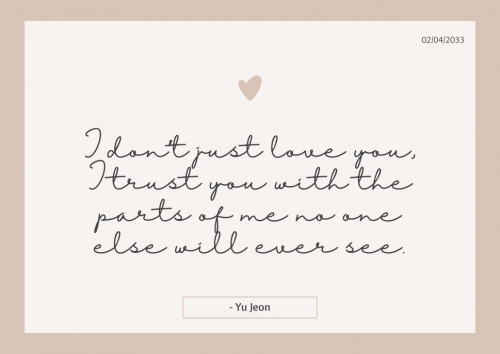 02/04/2033
I don't just love you,
I trust you with the
parts of me no one
else will ever see.
- Yu Jeon